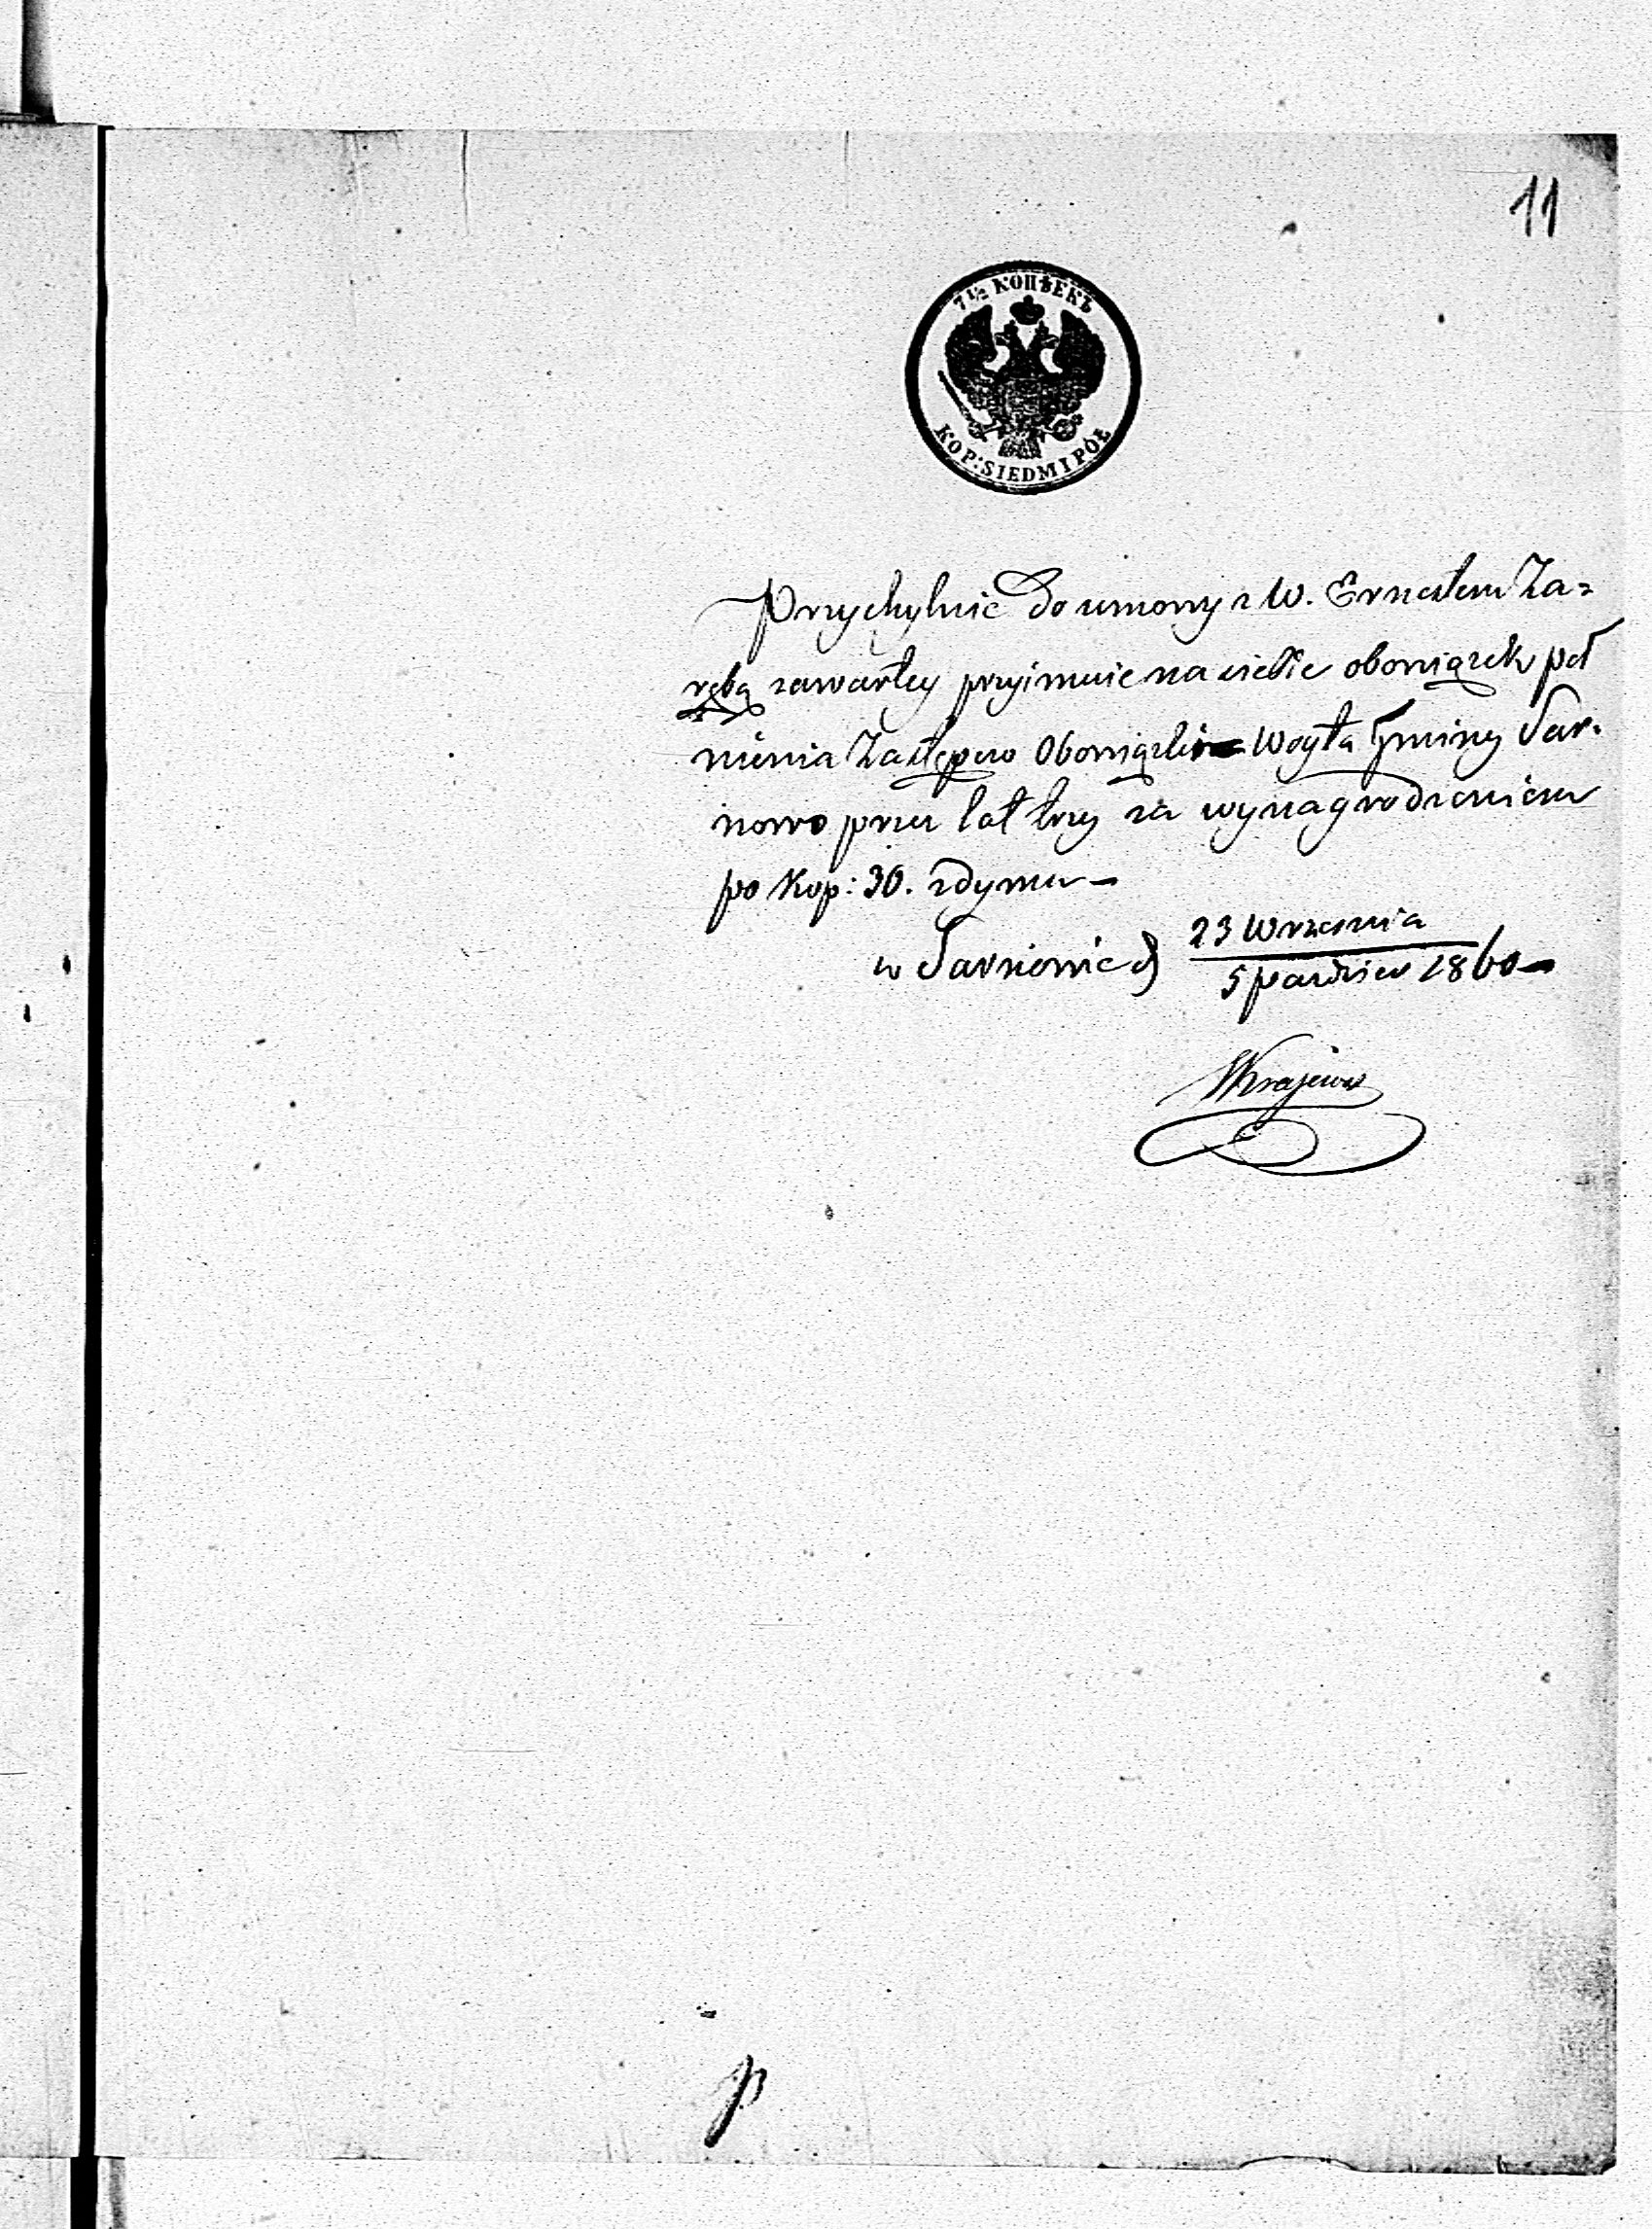 11
7½ КОПѢЕКЪ
KOP: SIEDM I PÓŁ
Przychylnie do umowy z W. Ernestem Za=
rębą zawartey przyimuie na siebie obowiązek peł
nienia Zastępcw Obowiązków Woyta Gminy Sar.
nowo przez lat trzy za wynagrodzeniem
po Kop: 30. z dymu –
w Sarnowie d 23 Września
5 Paździer 1860 –
WKrajews
p